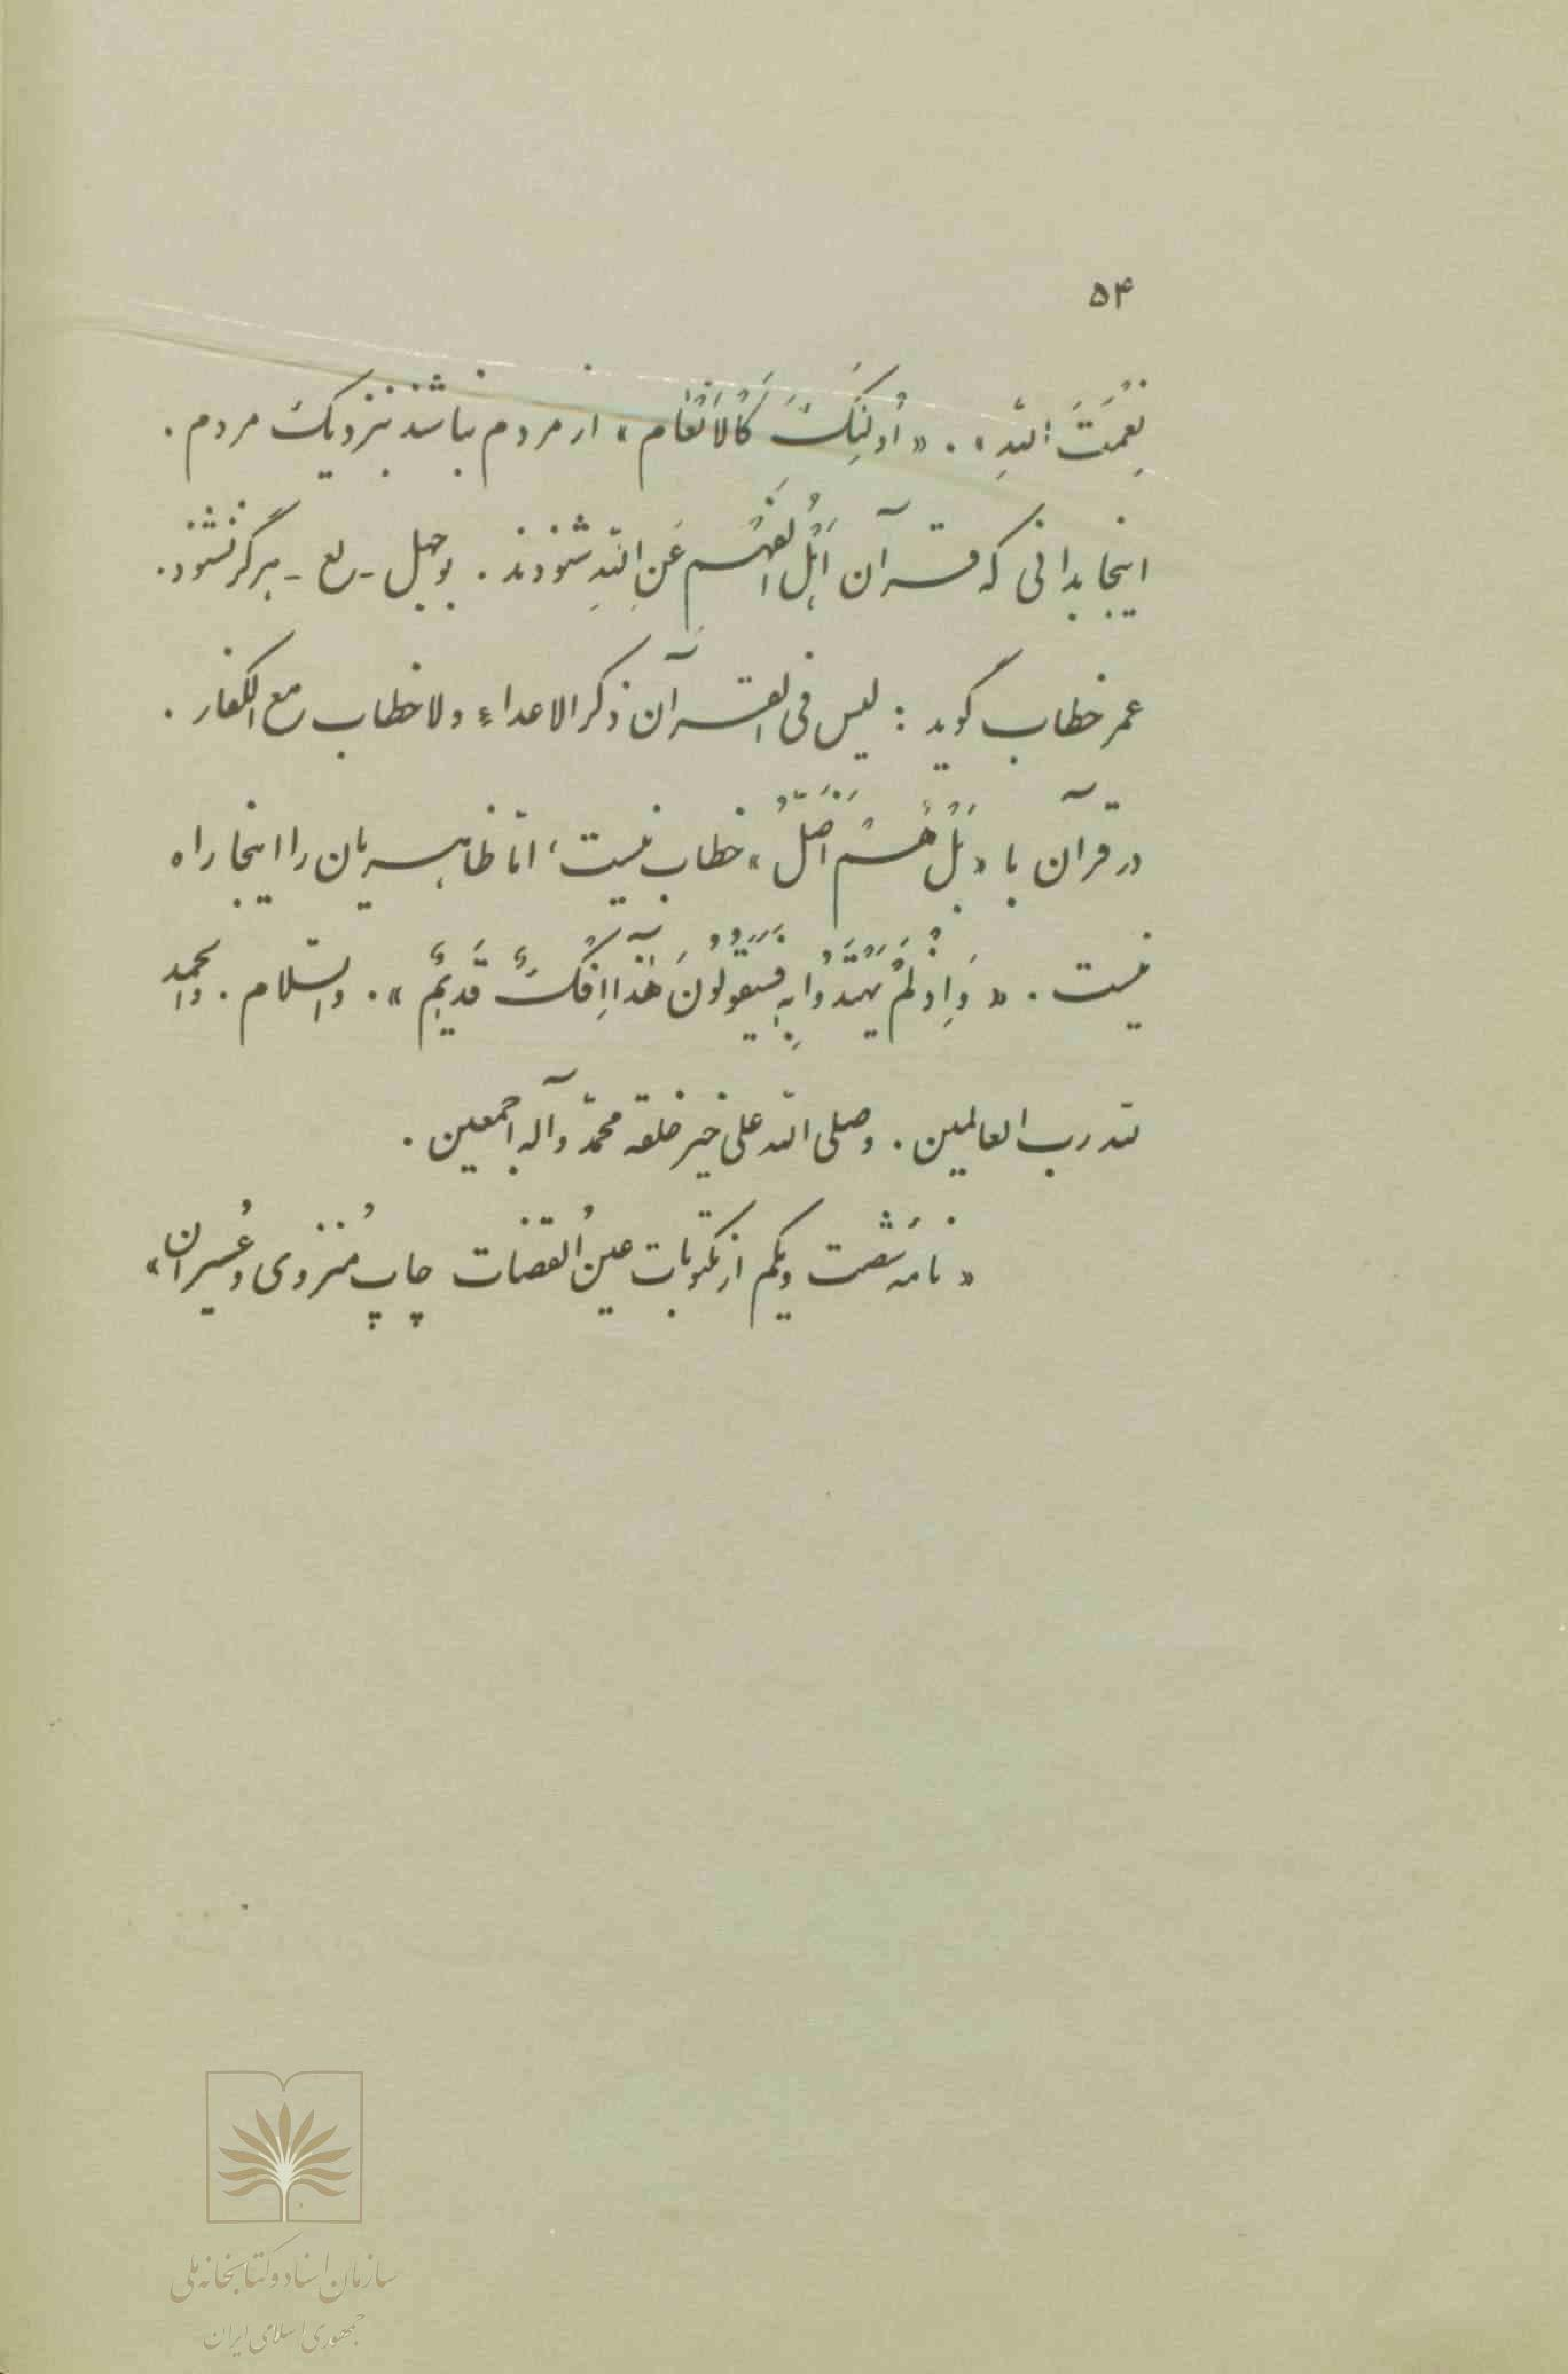 ۵۴
نِعْمَتَ اللّهِ» . «اُولئِکَ کَالْاَنْعٰام» از مردم نباشند بنزدیک مردم .
اینجا بدانی که قرآن اَهْلُ الْفَهْمِ عَنِ اللّهِ شنودند . بوجهل - لع - هرگز نشنود .
عمر خطاب گوید : لیس فی القرآن ذکر الاعداء ولا خطاب مع الکفار .
در قرآن با «بَلْ هُمْ اَضَلُّ» خطاب نیست ، امّا ظاهریان را اینجا راه
نیست . «وَاِذْ لَمْ یَهْتَدُوا بِهِ فَسَیَقُولُونَ هٰذَا اِفْکٌ قَدیٖمٌ» . والسّلام . والحمد
للّه رب العالمین . وصلی اللّه علی خیر خلقه محمّد وآله اجمعین .
«نامه شَصت ویکم از مکتوبات عینُ القضات چاپ مُنزوی و عُسیران»
سازمان اسناد و کتابخانه ملی
جمهوری اسلامی ایران